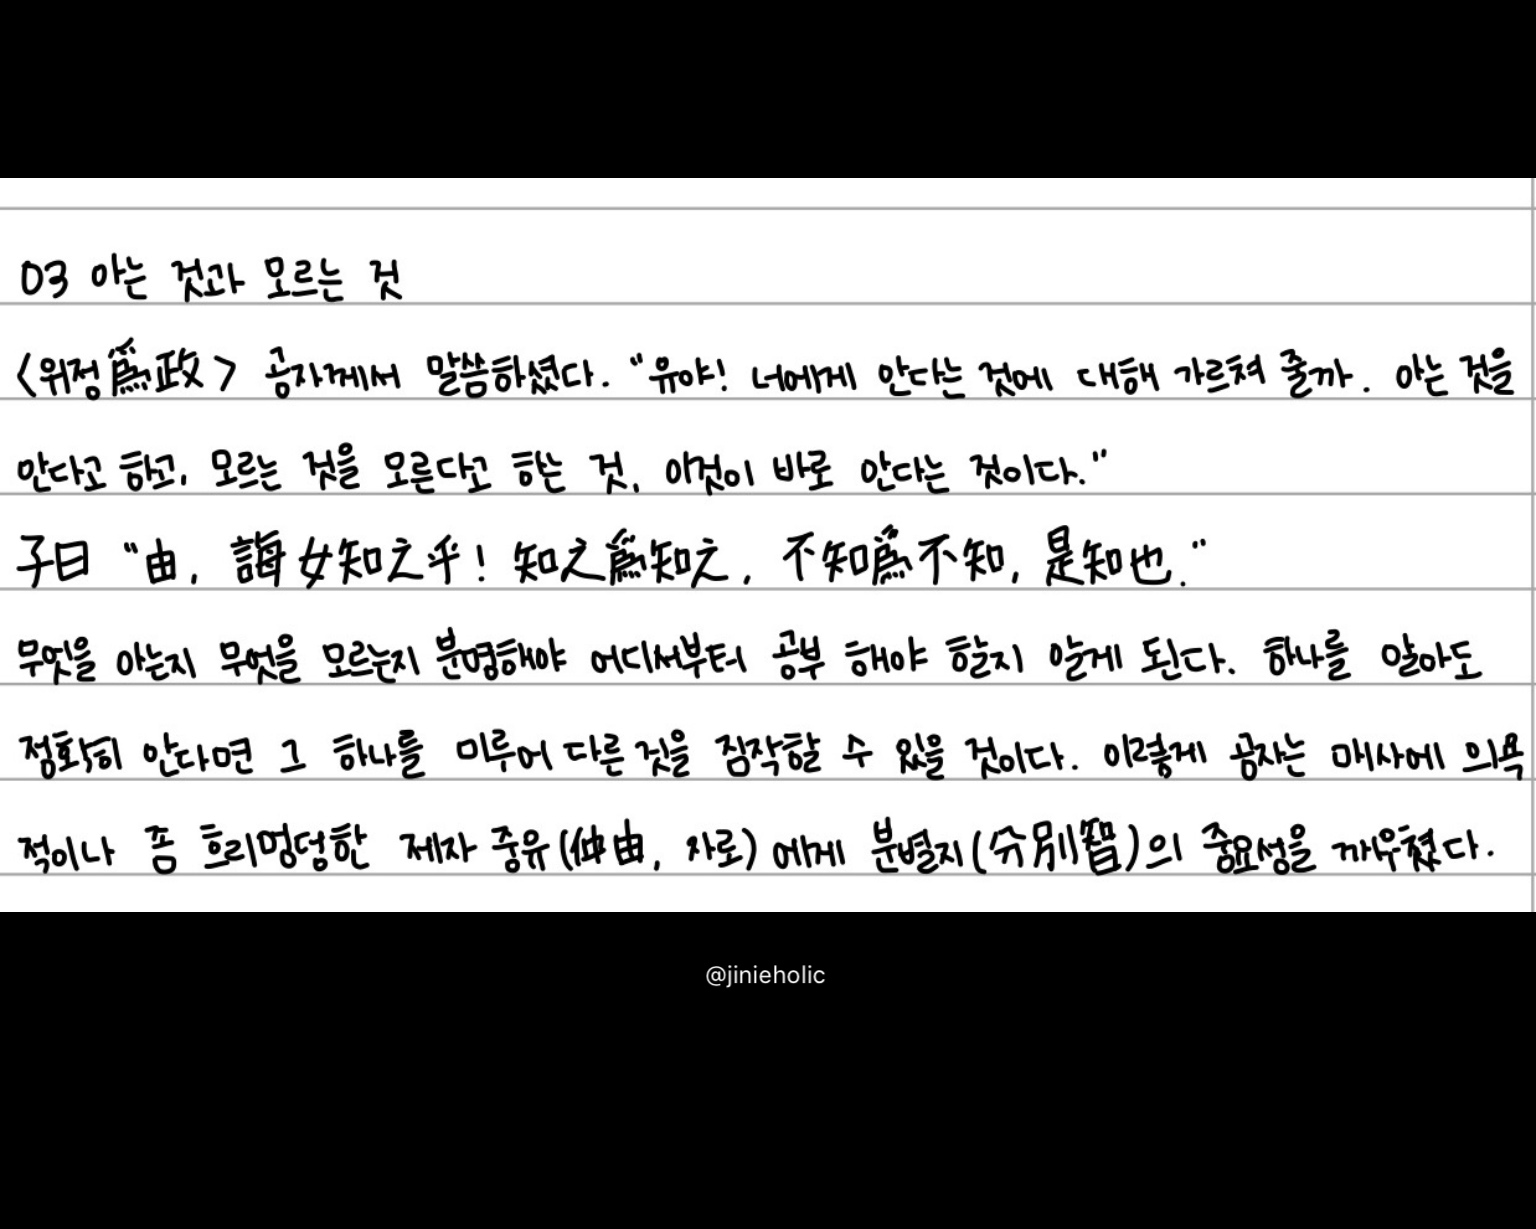 03 아는 것과 모르는 것
<위정爲政> 공자께서 말씀하셨다. "유야! 너에게 안다는 것에 대해 가르쳐 줄까. 아는 것을
안다고 하고, 모르는 것을 모른다고 하는 것, 이것이 바로 안다는 것이다."
子曰 "由, 誨女知之乎! 知之爲知之, 不知爲不知, 是知也."
무엇을 아는지 무엇을 모르는지 분명해야 어디서부터 공부 해야 할지 알게 된다. 하나를 알아도
정확히 안다면 그 하나를 미루어 다른 것을 짐작할 수 있을 것이다. 이렇게 공자는 매사에 의욕
적이나 좀 흐리멍덩한 제자 중유(仲由, 자로)에게 분별지(分別智)의 중요성을 깨우쳤다.
@jinieholic